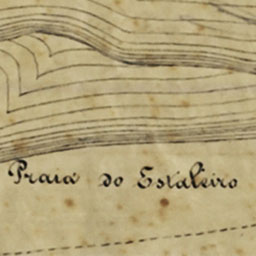 Praia do Estaleiro